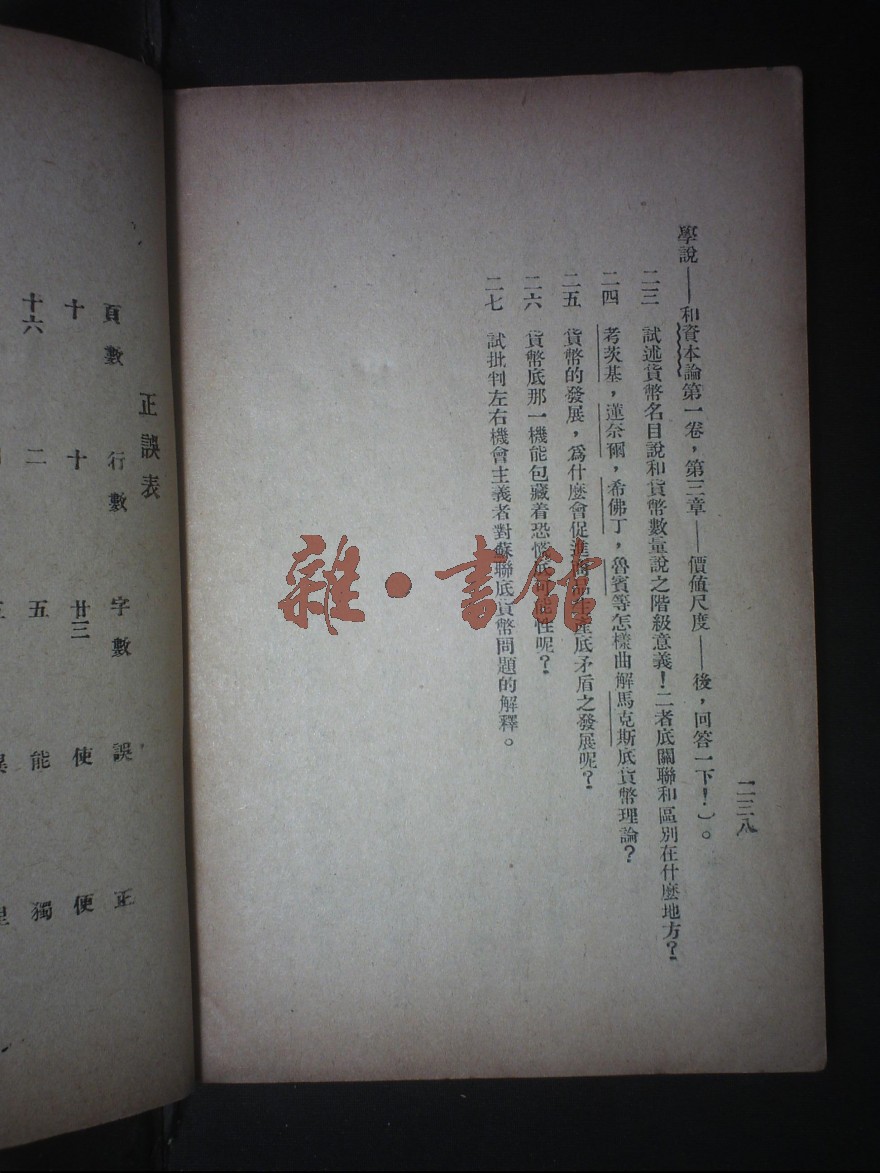 二三八
學說——和資本論第一卷，第三章——價值尺度——後，回答一下！）。
二三　試述貨幣名目說和貨幣數量說之階級意義！二者底關聯和區別在什麼地方？
二四　考茨基，蓮奈爾，希佛丁，魯賓等怎樣曲解馬克斯底貨幣理論？
二五　貨幣的發展，爲什麼會促進商品生產底矛盾之發展呢？
二六　貨幣底那一機能包藏着恐慌底可能性呢？
二七　試批判左右機會主義者對蘇聯底貨幣問題的解釋。
雜·書館
正誤表
頁數　行數　字數　誤　正
十　十　廿三　使　便
十六　二　五　能　獨